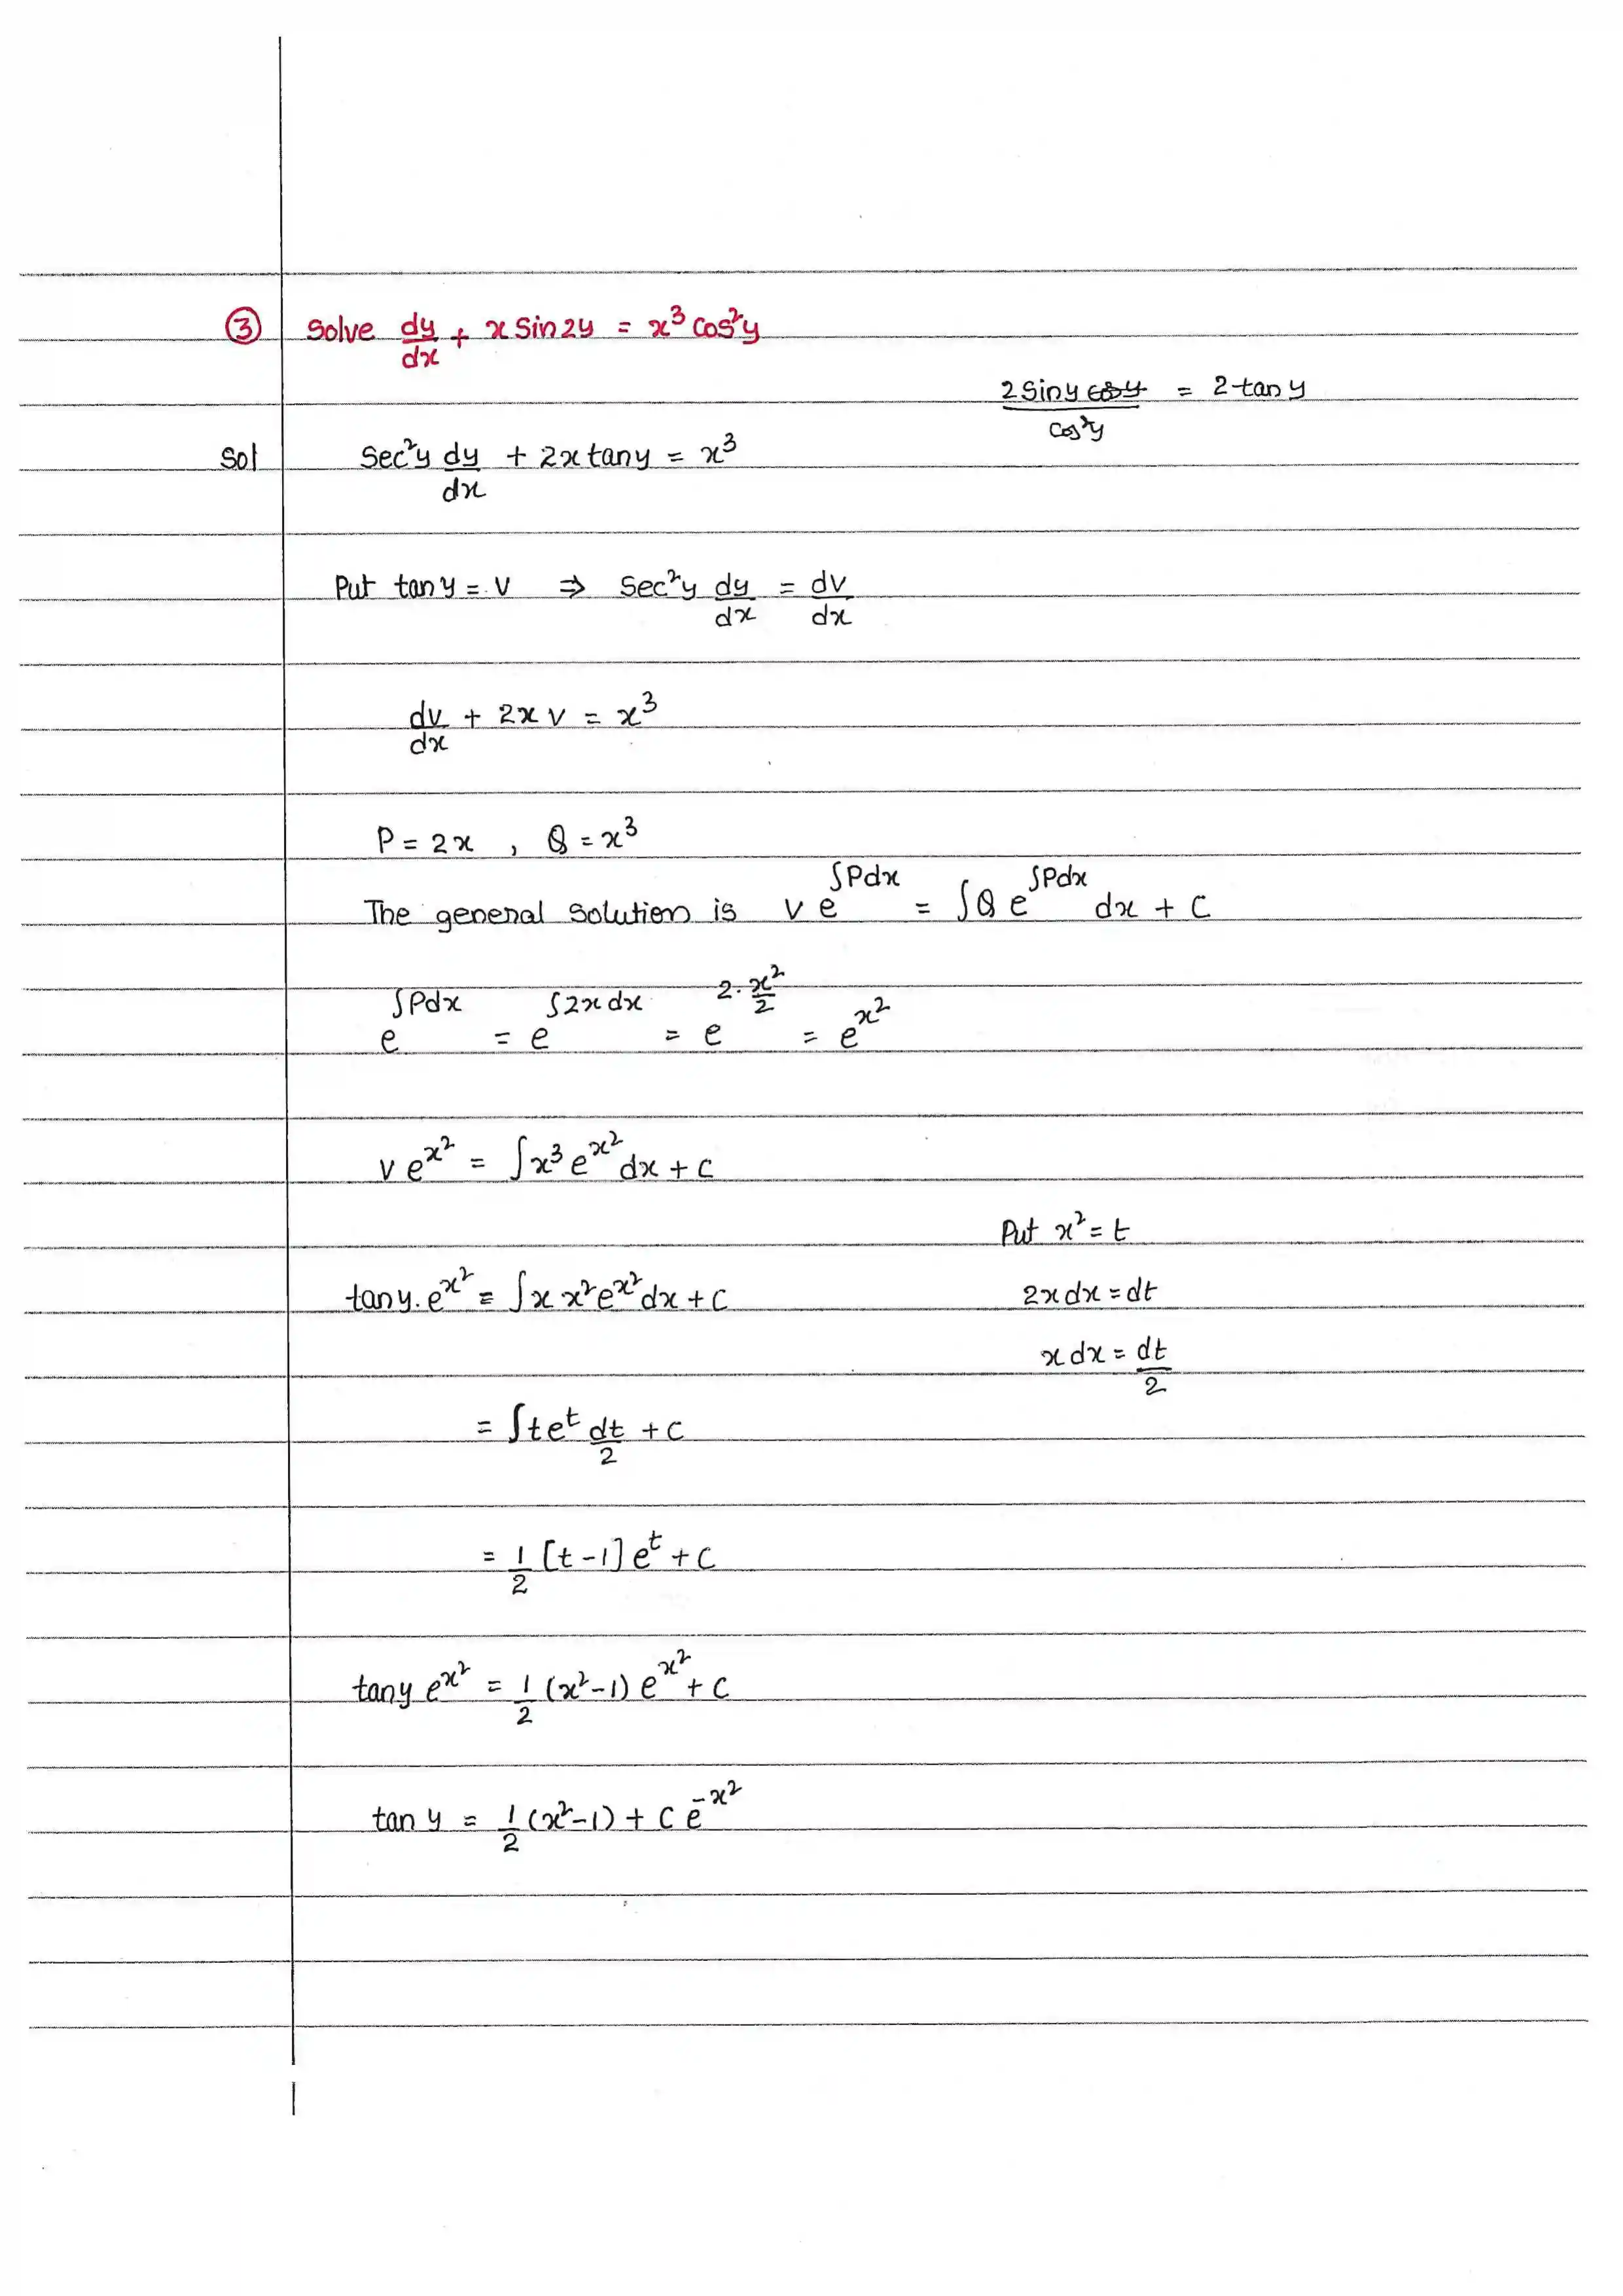 ③ Solve dy/dx + x sin2y = x³ cos²y
2 sin y cos y / cos²y = 2 tan y
Sol Sec²y dy/dx + 2x tan y = x³
Put tan y = v ⇒ Sec²y dy/dx = dv/dx
dv/dx + 2x v = x³
P = 2x , Q = x³
The general solution is v e^∫Pdx = ∫Q e^∫Pdx dx + c
e^∫Pdx = e^∫2x dx = e^2·x²/2 = e^x²
v e^x² = ∫x³ e^x² dx + c
Put x² = t
tan y. e^x² = ∫x x² e^x² dx + c 2x dx = dt
x dx = dt/2
= ∫t e^t dt/2 + c
= 1/2 [t - 1] e^t + c
tan y e^x² = 1/2 (x² - 1) e^x² + c
tan y = 1/2 (x² - 1) + c e^-x²